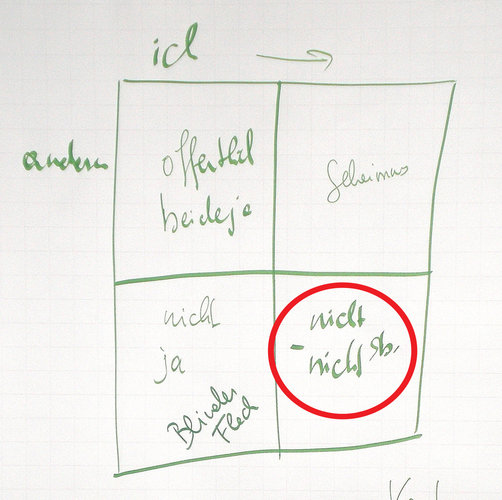 ich
andern
öffentlich
beide ja
Geheimnis
nicht
ja
Blinder
Fleck
nicht
- nicht